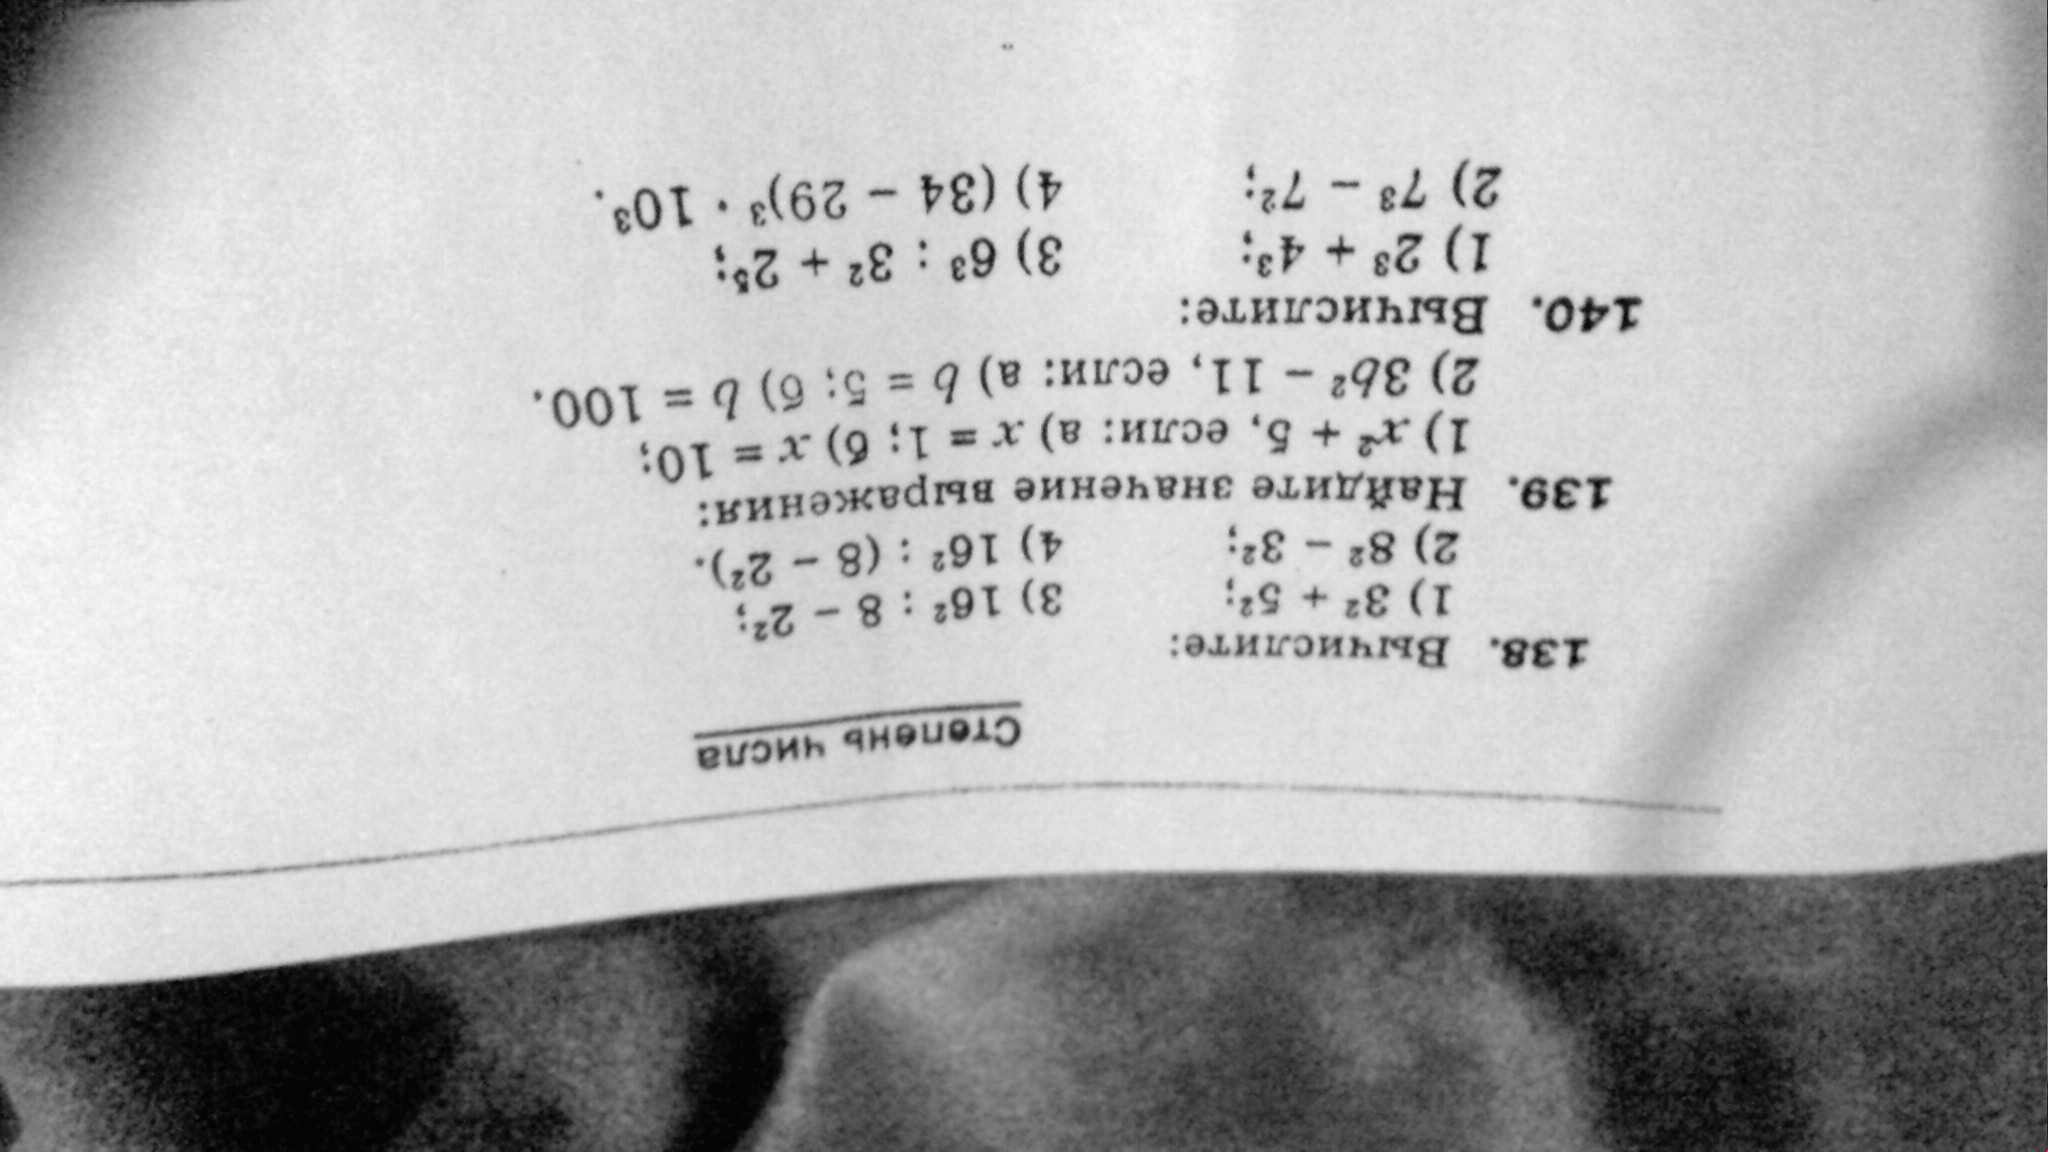 Степень числа
138. Вычислите:
1) 3² + 5²; 3) 16² : 8 − 2²;
2) 8² − 3²; 4) 16² : (8 − 2²).
139. Найдите значение выражения:
1) x² + 5, если: а) x = 1; б) x = 10;
2) 3b² − 11, если: а) b = 5; б) b = 100.
140. Вычислите:
1) 2³ + 4³; 3) 6³ : 3² + 2⁵;
2) 7³ − 7²; 4) (34 − 29)³ · 10³.